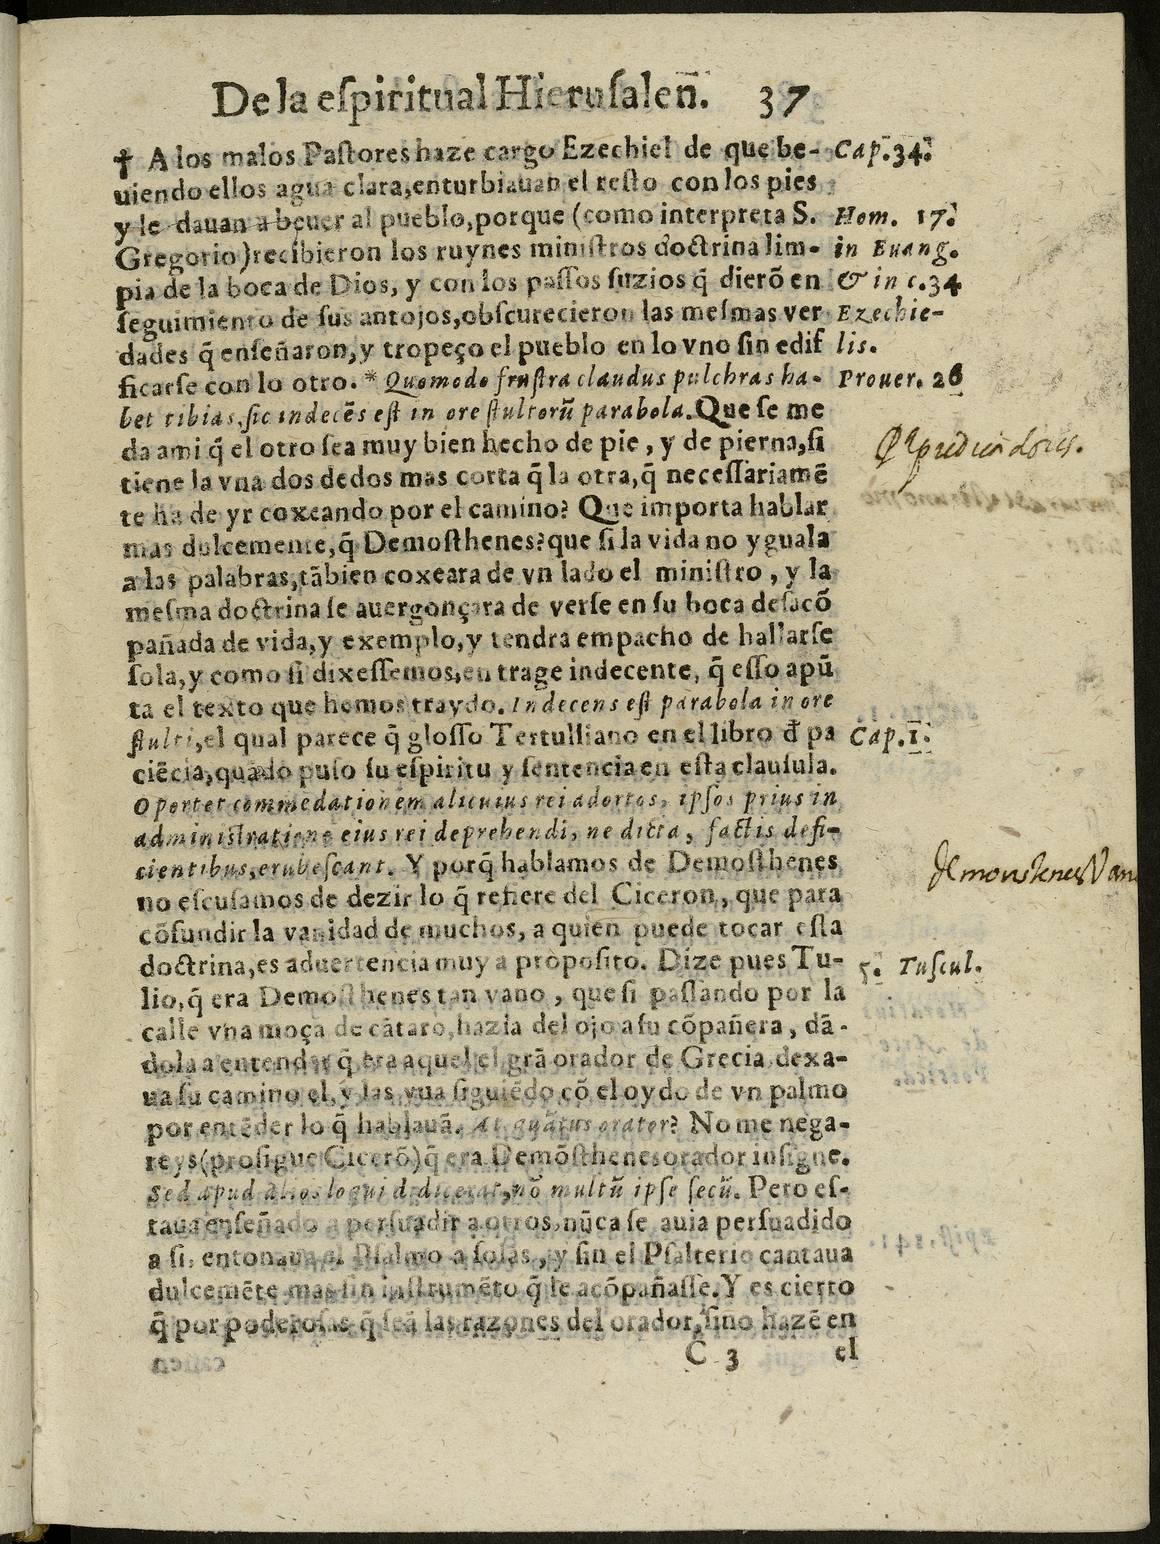 De la eſpiritual Hieruſalen̄. 37
† A los malos Paſtores haze cargo Ezechiel de que be- Cap. 34.
uiendo ellos agua clara, enturbiauan el reſto con los pies
y le dauan a beuer al pueblo, porque (como interpreta S. Hom. 17.
Gregorio) recibieron los ruynes miniſtros doctrina lim- in Euang.
pia de la boca de Dios, y con los paſſos ſuzios q̄ dierō en & in c. 34
ſeguimiento de ſus antojos, obſcurecieron las meſmas ver Ezechie-
dades q̄ enſeñaron, y tropeço el pueblo en lo vno ſin edif lis.
ficarſe con lo otro. * Quomodo fruſtra claudus pulchras ha- Prouer. 26
bet tibias, ſic indecēs eſt in ore ſtultorū parabola. Que ſe me
da a mi q̄ el otro ſea muy bien hecho de pie, y de pierna, ſi
tiene la vna dos dedos mas corta q̄ la otra, q̄ neceſſariamē
te ha de yr coxeando por el camino? Que importa hablar
mas dulcemente, q̄ Demoſthenes? que ſi la vida no yguala
a las palabras, tābien coxeara de vn lado el miniſtro, y la
meſma doctrina ſe auergonçara de verſe en ſu boca deſacō
pañada de vida, y exemplo, y tendra empacho de hallarſe
ſola, y como ſi dixeſſemos, en trage indecente, q̄ eſſo apū
ta el texto que hemos traydo. Indecens eſt parabola in ore
ſtulti, el qual parece q̄ gloſſo Tertulliano en el libro đ pa Cap. 1.
ciēcia, quādo puſo ſu eſpiritu y ſentencia en eſta clauſula.
Oportet commēdationem alicuius rei adortos, ipſos prius in
adminiſtratione eius rei deprehendi, ne dicta, factis defi-
cientibus, erubeſcant. Y porq̄ hablamos de Demoſthenes
no eſcuſamos de dezir lo q̄ refiere del Ciceron, que para
cōfundir la vanidad de muchos, a quien puede tocar eſta
doctrina, es aduertencia muy a propoſito. Dize pues Tu- 5. Tuſcul.
lio, q̄ era Demoſthenes tan vano, que ſi paſſando por la
calle vna moça de cātaro, hazia del ojo a ſu cōpañera, dā-
dola a entender q̄ era aquel el grā orador de Grecia, dexa-
ua ſu camino el, y las yua ſiguiēdo cō el oydo de vn palmo
por entēder lo q̄ hablauā. At quātus orator? No me nega-
reys (proſigue Cicerō) q̄ era Demōſthenes orador inſigne.
Sed apud alios loqui didicerat, nō multū ipſe ſecū. Pero eſ-
taua enſeñado a perſuadir a otros, nūca ſe auia perſuadido
a ſi, entonaua el Pſalmo a ſolas, y ſin el Pſalterio cantaua
dulcemēte mas ſin inſtrumēto q̄ le acōpañaſſe. Y es cierto
q̄ por poderoſas q̄ ſeā las razones del orador, ſino hazē en
C 3 el
pª predicadores.
demonstenes Vano